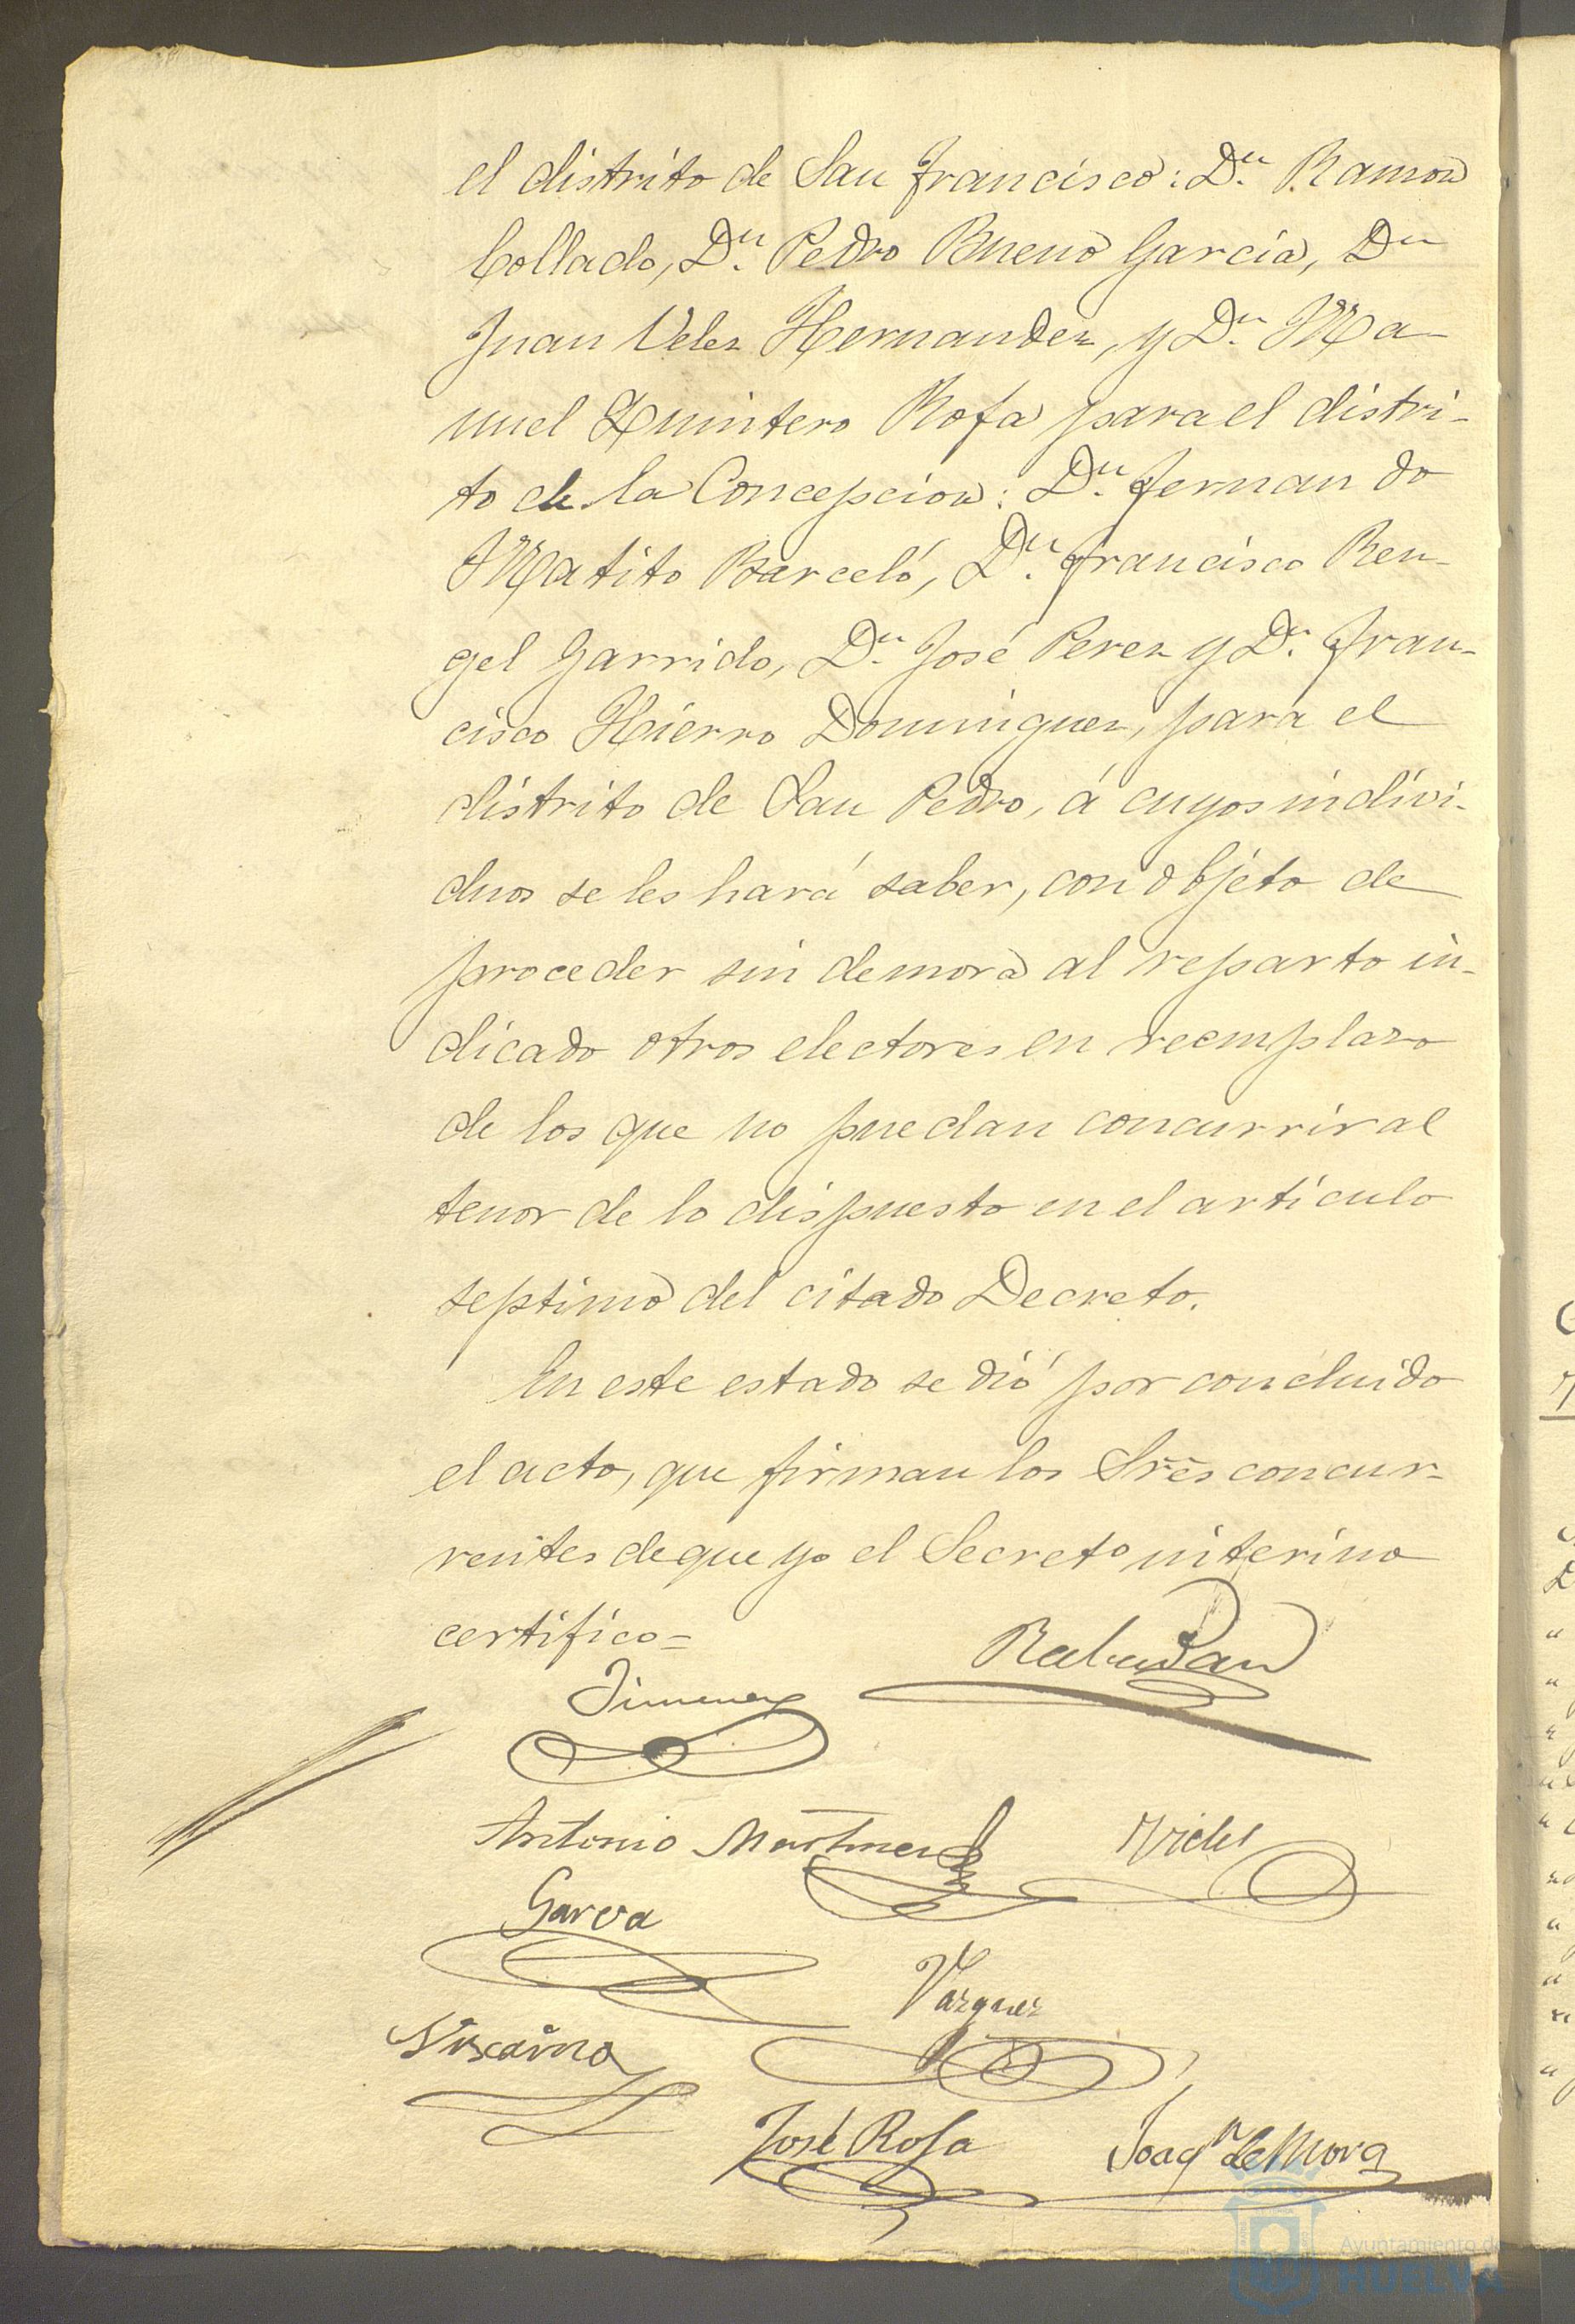 el distrito de San Francisco: Dn. Ramon
Collado, Dn. Pedro Bueno Garcia, Dn
Juan Velez Hernandez, y Dn. Ma-
nuel Quintero Rofa para el distri-
to de la Concepcion: Dn. Fernando
Matito Barceló, Dn. Francisco Ren-
gel Garrido, Dn. José Perez y Dn. Fran-
cisco Hierro Dominguez, para el
distrito de San Pedro, á cuyos indivi-
duos se les hará saber, con objeto de
proceder sin demora al reparto in-
dicado otros electores en reemplazo
de los que no puedan concurrir al
tenor de lo dispuesto en el articulo
septimo del citado Decreto.
En este estado se dió por concluido
el acto, que firman los Sres concur-
rentes de que yo el Secreto interino
certifico=
Rabadan
Jimenez
Antonio Martinez
Garcia
Vazquez
Vizcaino
José Rofa Joaqn de Mora
Ayuntamiento de
HUELVA